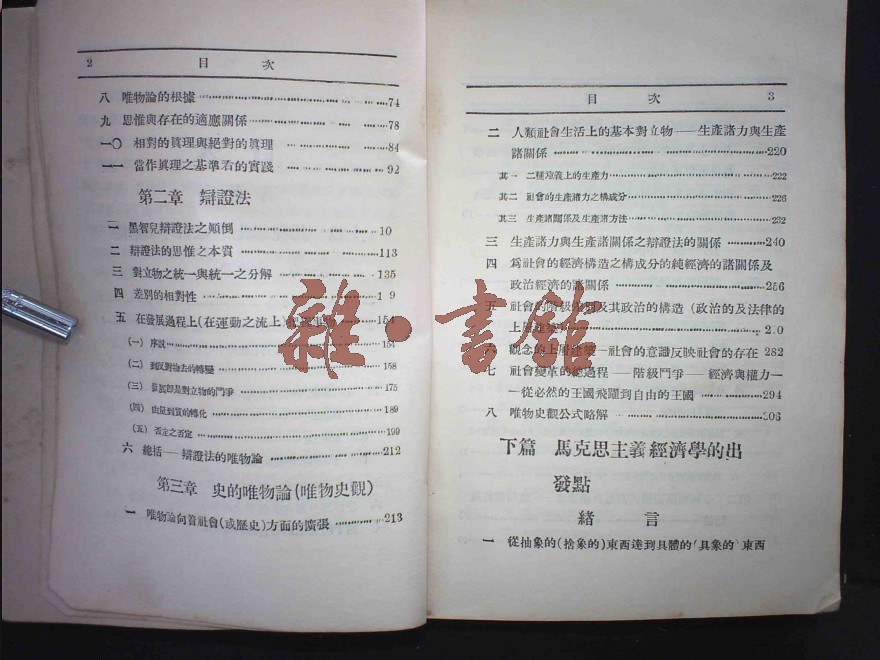 2 目 次
八 唯物論的根據 74
九 思惟與存在的適應關係 78
一〇 相對的眞理與絕對的眞理 84
一一 當作眞理之基準看的實踐 92
第二章 辯證法
一 黑智兒辯證法之顚倒 10
二 辯證法的思惟之本質 113
三 對立物之統一與統一之分解 135
四 差別的相對性 1 9
五 在發展過程上(在運動之流上) 154
(一) 序說 154
(二) 到反對物去的轉變 158
(三) 發展卽是對立物的鬥爭 175
(四) 由量到質的轉化 189
(五) 否定之否定 199
六 總括——辯證法的唯物論 212
第三章 史的唯物論(唯物史觀)
一 唯物論向着社會(或歷史)方面的擴張 213
目 次 3
二 人類社會生活上的基本對立物——生產諸力與生產
諸關係 220
其一 二種意義上的生產力 222
其二 社會的生產諸力之構成分 226
其三 生產諸關係及生產諸方法 232
三 生產諸力與生產諸關係之辯證法的關係 240
四 爲社會的經濟構造之構成分的純經濟的諸關係及
政治經濟的諸關係 256
五 社會的階級 及其政治的構造(政治的及法律的
上層建築)
六 觀念的上層建築—社會的意識反映社會的存在 282
七 社會變革的 過程——階級鬥爭——經濟與權力—
—從必然的王國飛躍到自由的王國 294
八 唯物史觀公式略解 306
下篇 馬克思主義經濟學的出
發點
緒 言
一 從抽象的(捨象的)東西達到具體的(具象的)東西
雜·書館